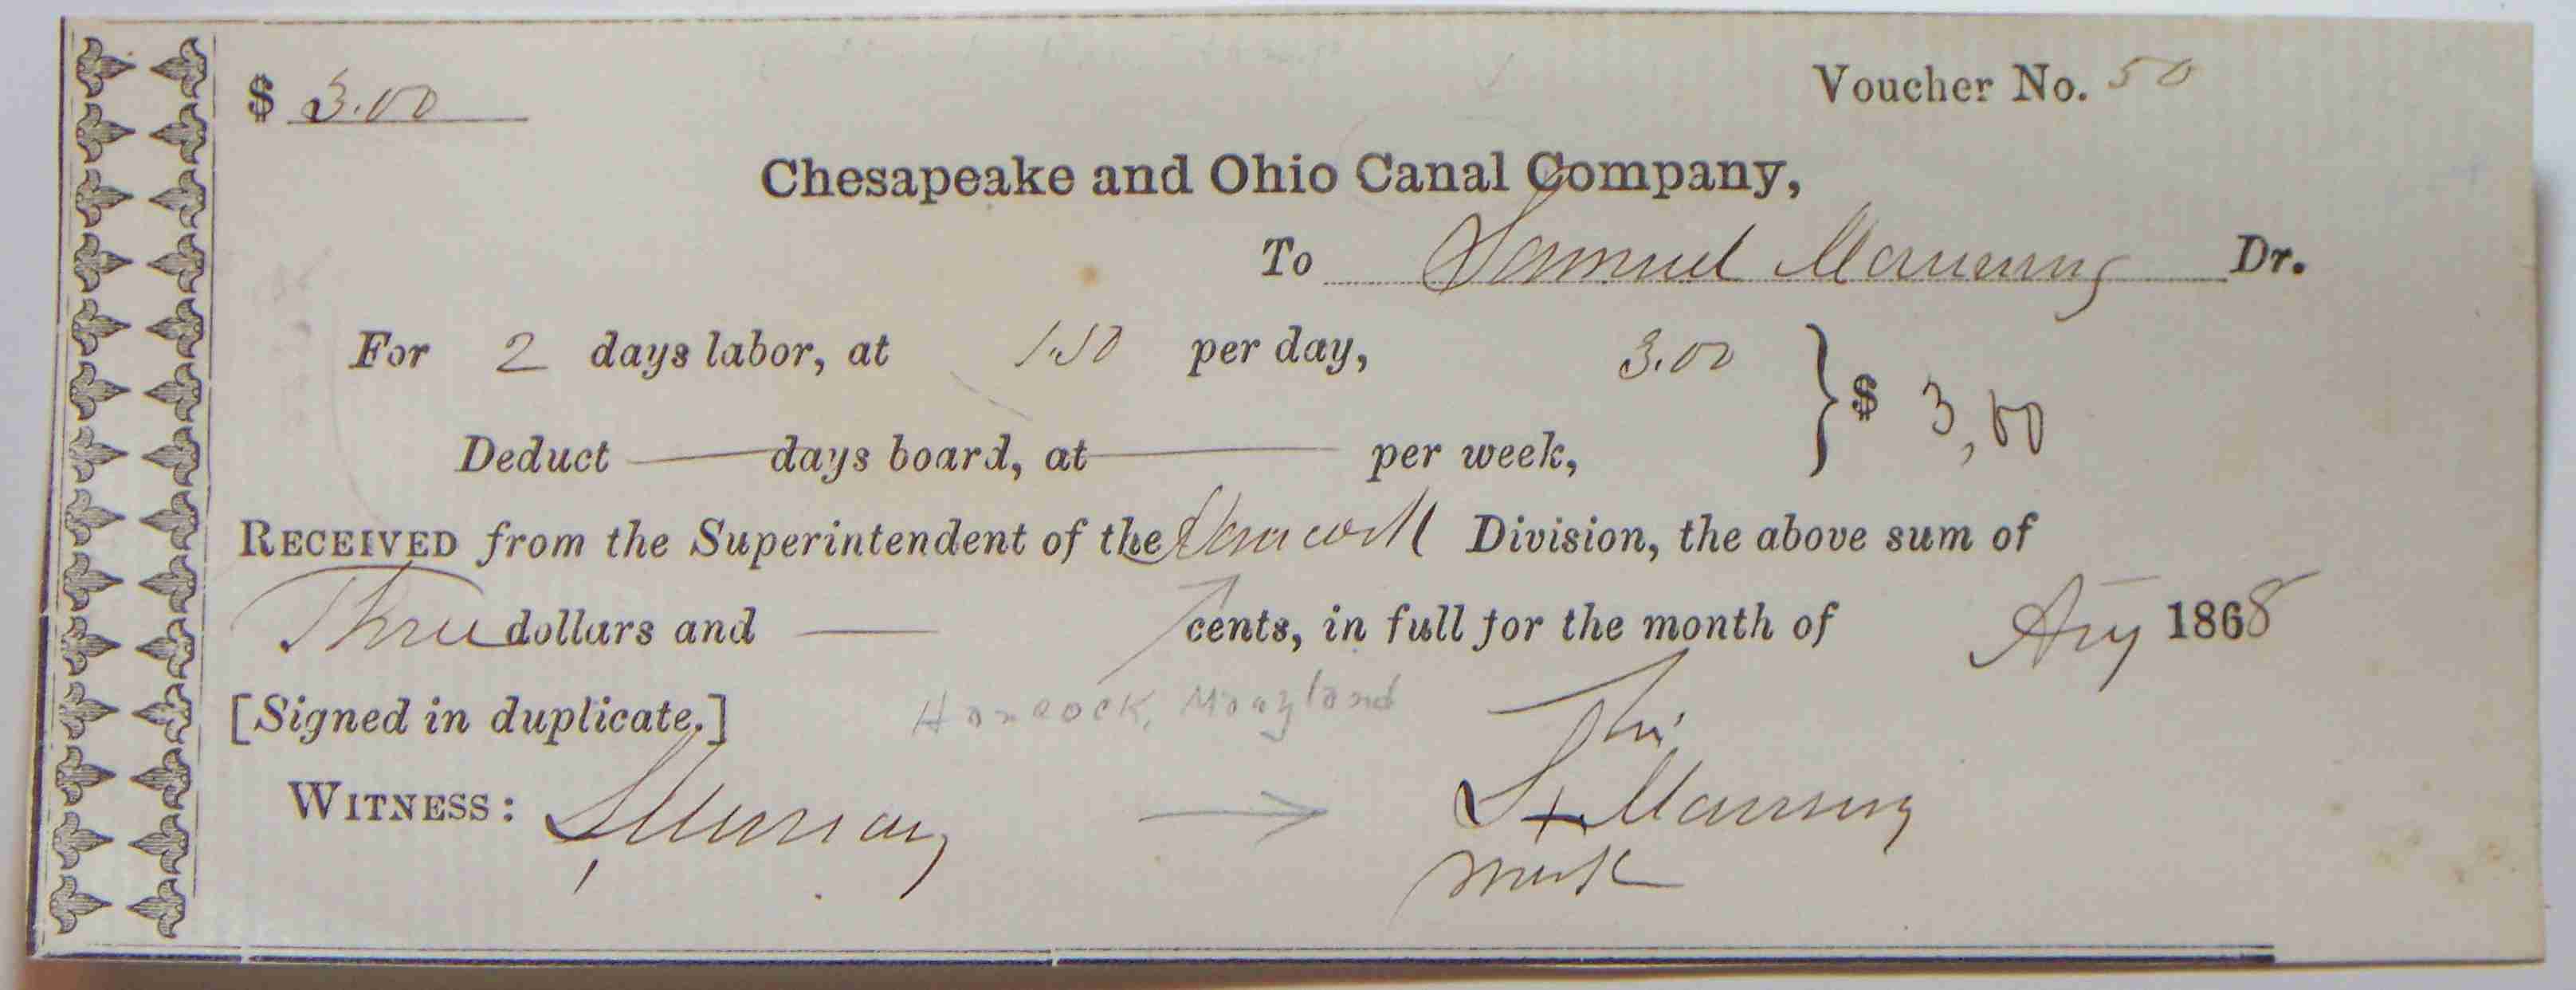 $ 3.00 Voucher No. 50
Chesapeake and Ohio Canal Company,
To Samuel Manning Dr.
For 2 days labor, at 1.50 per day, 3.00
$ 3,00
Deduct — days board, at — per week,
RECEIVED from the Superintendent of the Hancock Division, the above sum of
Three dollars and — cents, in full for the month of Aug 1868
[Signed in duplicate.] Hancock, Maryland
his
WITNESS: S Murray S + Manning
mark